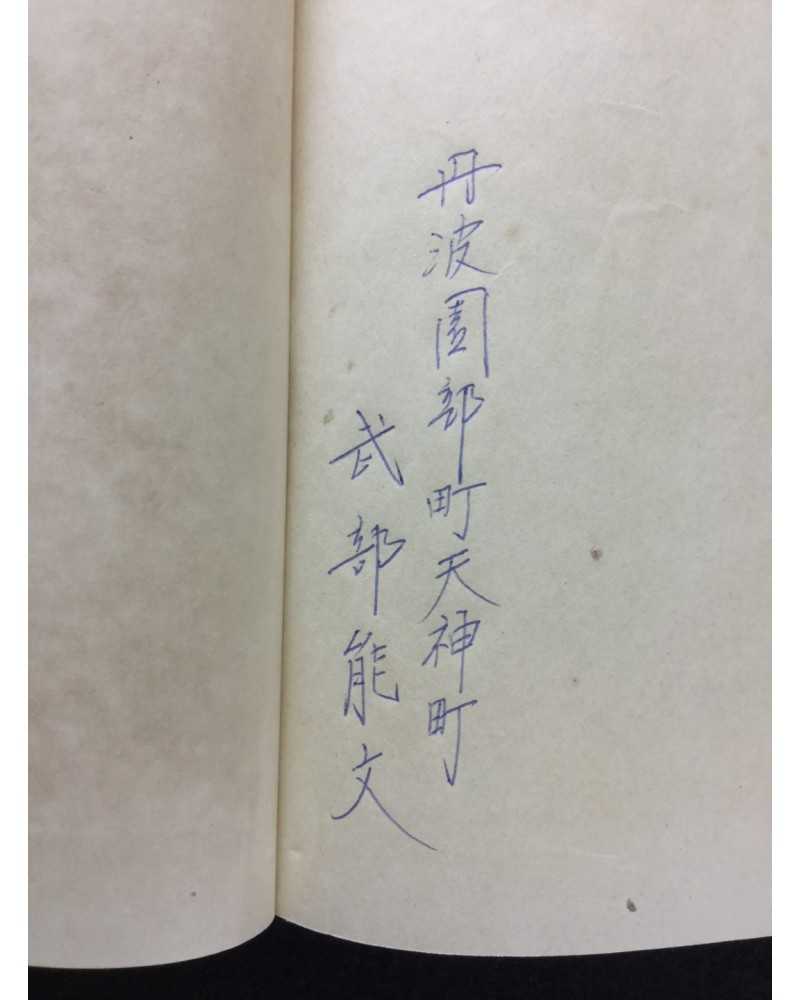 丹波園部町天神町
武部能文